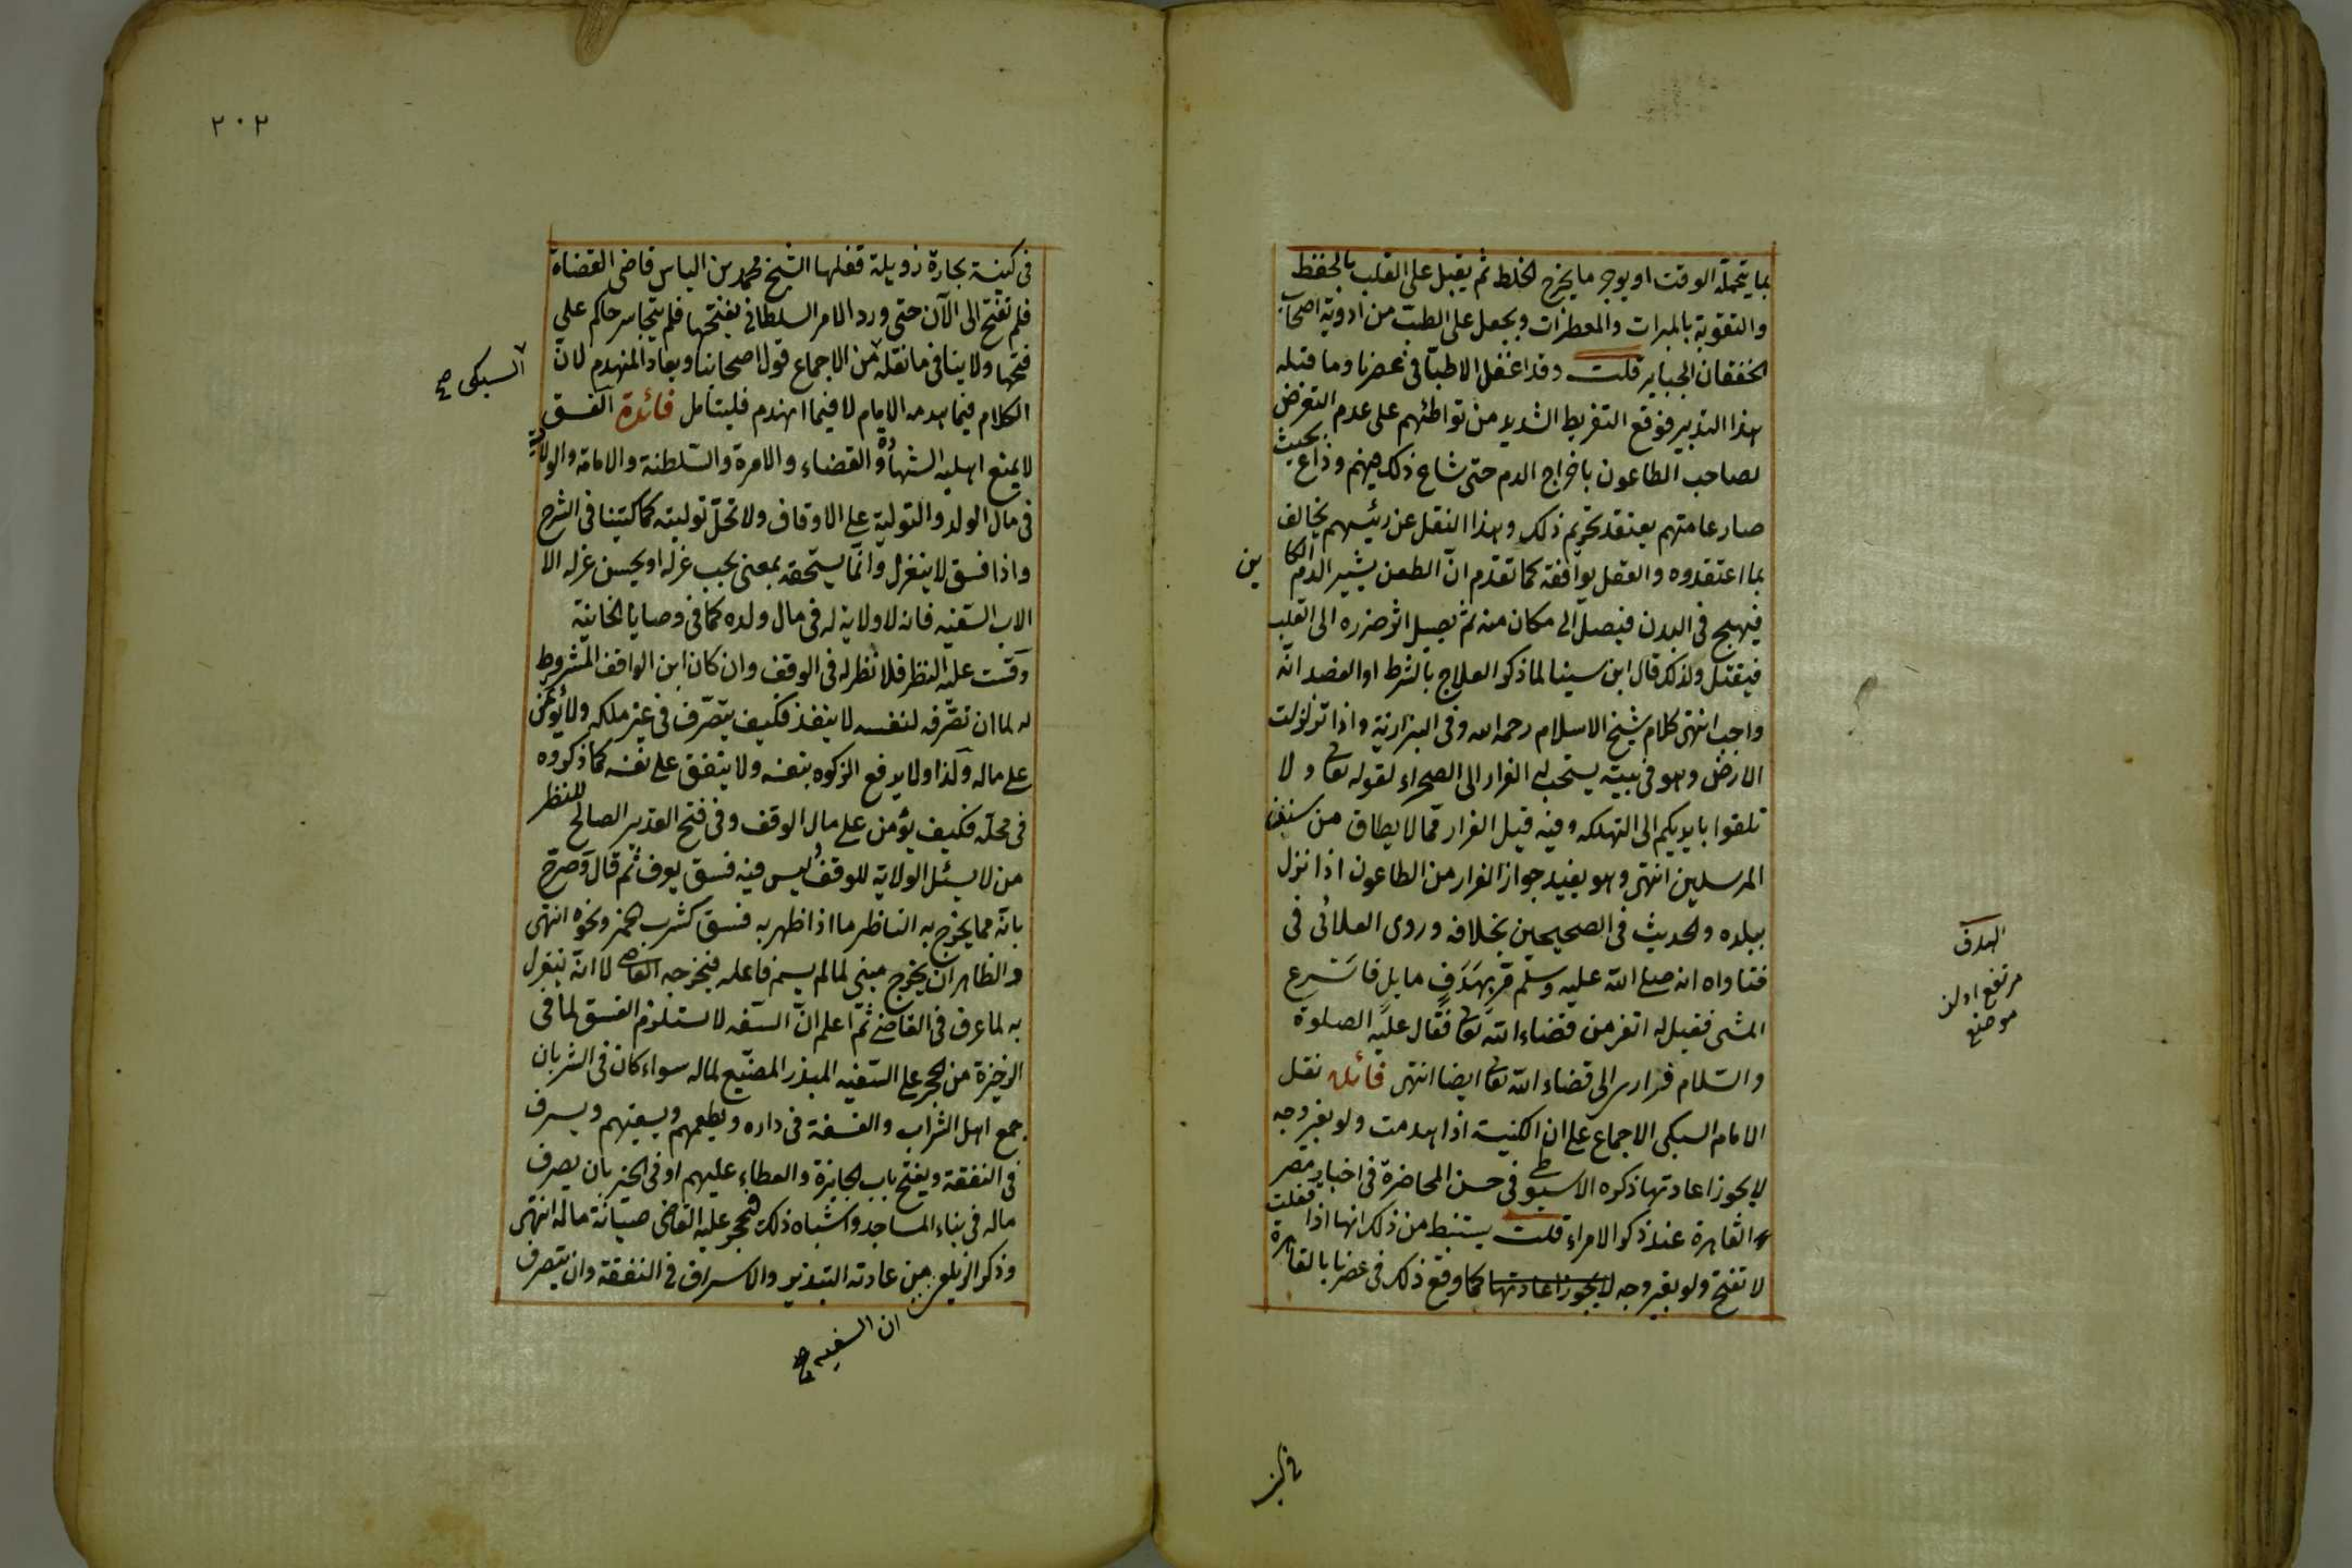 بما يتحمله الوقت او يوجر ما يخرج الخلط ثم يقبل على القلب بالحفظ
والتقوية بالمبردات والمعطرات ويجعل على الطب من ادوية اصحاب
الخفقان الجباير قلت وقد اغفل الاطبا فى عصرنا وما قبله
هذا التدبير فوقع التفريط الشديد من تواطئهم على عدم التعرض
لصاحب الطاعون باخراج الدم حتى شاع ذلك فيهم وذاع بحيث
صار عامتهم يعتقد تحريم ذلك وهذا النقل عن رئيسهم يخالف
بما اعتقدوه والعقل يوافقه كما تقدم ان الطعن يثير الدم الكا
ين
فيهيج فى البدن فيصل الى مكان منه ثم يصيل اثر ضرره الى القلب
فيقتل ولذلك قال ابن سينا لما ذكر العلاج بالشرط او الفصد انه
واجب انتهى كلام شيخ الاسلام رحمه الله وفى البزازية واذا تزلزلت
الارض وهو فى بيته يستحب له الفرار الى الصحراء لقوله تعا ولا
تلقوا بايديكم الى التهلكه وفيه قيل الفرار مما لا يطاق من سنن
المرسلين انتهى وهو يفيد جواز الفرار من الطاعون اذا نزل
ببلده والحديث فى الصحيحين بخلافه وروى العلائى فى
فتاواه انه صلى الله عليه وسلم مر بهدف مايل فاسرع
المشى فقيل له اتفر من قضاء الله تعا فقال عليه الصلوة
والسلام فرارى الى قضاء الله تعا ايضا انتهى فائدة نقل
الامام السبكى الاجماع على ان الكنيسة اذا هدمت ولو بغير وجه
لا يجوز اعادتها ذكره الاسيوطى فى حسن المحاضرة فى اخبار مصر
والقاهرة عند ذكر الامراء قلت يستنبط من ذلك انها اذا قفلت
لا تفتح ولو بغير وجه لا يجوز اعادتها كما وقع ذلك فى عصرنا بالقاهرة
الهدف
مرتفع اولن
موضع
٢٠٢
فى كنيسة بحارة زويلة قفلها الشيخ محمد بن الياس قاضى القضاة
فلم تفتح الى الآن حتى ورد الامر السلطانى بفتحها فلم يتجاسر حاكم على
فتحها ولا ينافى ما نقله من الاجماع قول اصحابنا ويعاد المنهدم لان
السبكى صح
الكلام فيما هدمه الامام لا فيما انهدم فليتأمل فائدة الفسق
لا يمنع اهلية الشهادة والقضاء والامرة والسلطنة والامامة والولاية
فى مال الولد والتولية على الاوقاف ولا تحل توليته كما كتبنا فى الشرح
واذا فسق لا ينعزل وانما يستحقه بمعنى يجب عزله او يحسن عزله الا
الاب السفيه فانه لا ولاية له فى مال ولده كما فى وصايا الخانية
وقست عليه النظر فلا نظر له فى الوقف وان كان ابن الواقف المشروط
له لما ان تصرفه لنفسه لا ينفذ فكيف يتصرف فى غير ملكه ولا يؤتمن
على ماله ولذا ولا يدفع الزكوة بنفسه ولا ينفق على نفسه كما ذكروه
فى محله فكيف يؤمن على مال الوقف وفى فتح القدير الصالح للنظر
من لا يسئل الولاية للوقف وليس فيه فسق يعرف ثم قال وصرح
بانه مما يخرج به الناظر ما اذا ظهر به فسق كشرب الخمر ونحوه انتهى
والظاهر ان يخرج مبنى لما لم يسم فاعله فيخرجه القاضى لا انه ينعزل
به لما عرف فى القاضى ثم اعلم ان السفه لا يستلزم الفسق لما فى
الذخيرة من الحجر على السفيه المبذر المضيع لماله سواء كان فى الشر بان
جمع اهل الشراب والفسقة فى داره ويطعمهم ويسقيهم ويسرف
فى النفقة ويفتح باب الجايزة والعطاء عليهم او فى الخير بان يصرف
ماله فى بناء المساجد واشباه ذلك فيحجر عليه القاضى صيانة ماله انتهى
وذكر الزيلعى من عادته التبذير والاسراف فى النفقة وان يتصرف
ان السفيه صح